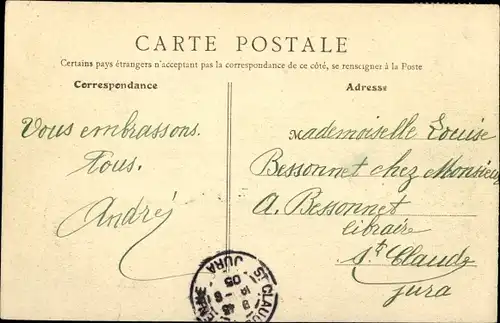 CARTE POSTALE
Certains pays étrangers n'acceptant pas la correspondance de ce côté, se renseigner à la Poste
Correspondance
Adresse
Vous embrassons.
Tous.
André
Mademoiselle Louise
Bessonnet chez Monsieur
A. Bessonnet
libraire
St. Claude
Jura
JURA